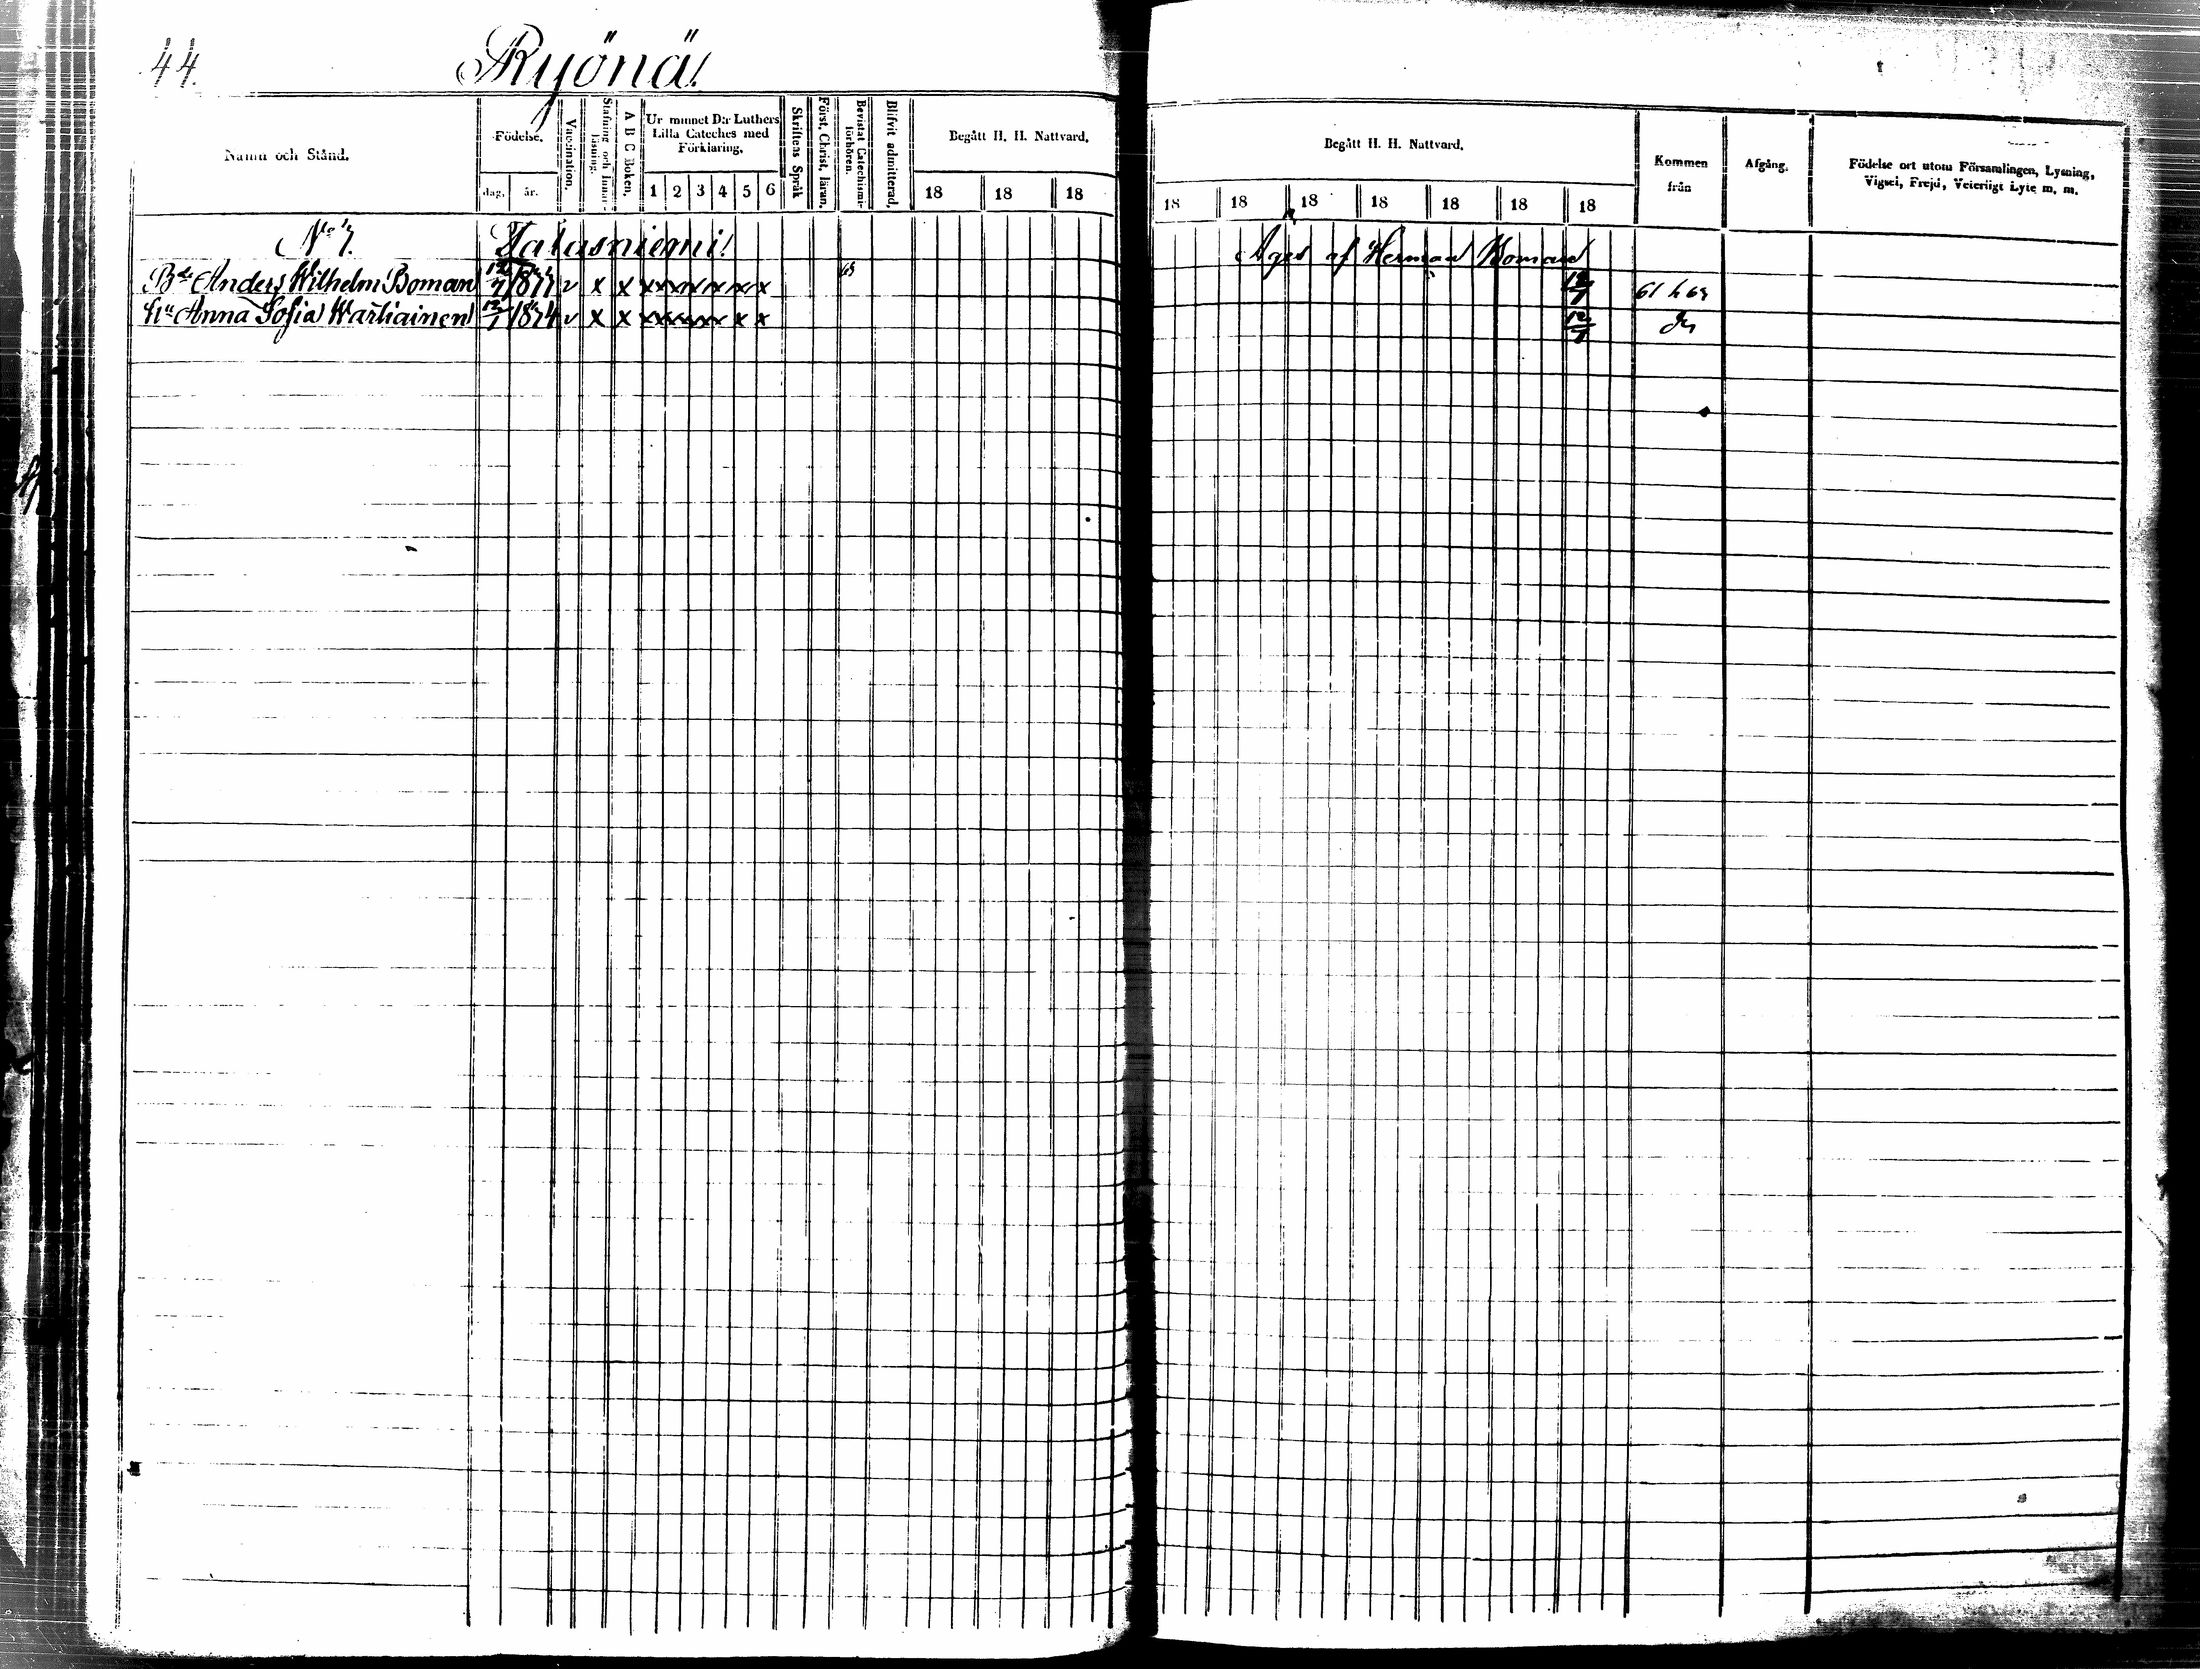 44. Ryönä!
Namn och Stånd. Födelse. dag. år. Vaccination. Stafning och Innanläsning. A B C Boken. Ur minnet D:r Luthers Lilla Cateches med Förklaring. 1 2 3 4 5 6 Skriftens Språk Först. Christ. läran. Bevistat Catechismiförhören. Blifvit admitterad. Begått H. H. Nattvard. 18 18 18
Begått H. H. Nattvard. 18 18 18 18 18 18 18 Kommen från Afgång. Födelse ort utom Församlingen, Lysning, Vigsel, Frejd, Veterligt Lyte m. m.
No 7. Talasniemi! Äges af Herman Boman
Bde Anders Wilhelm Boman 12/7 1877 v x x x x x x x x 12/7 61 h 69
Hu Anna Sofia Wartiainen 12/1 1874 v x x x x x x x x 12/7